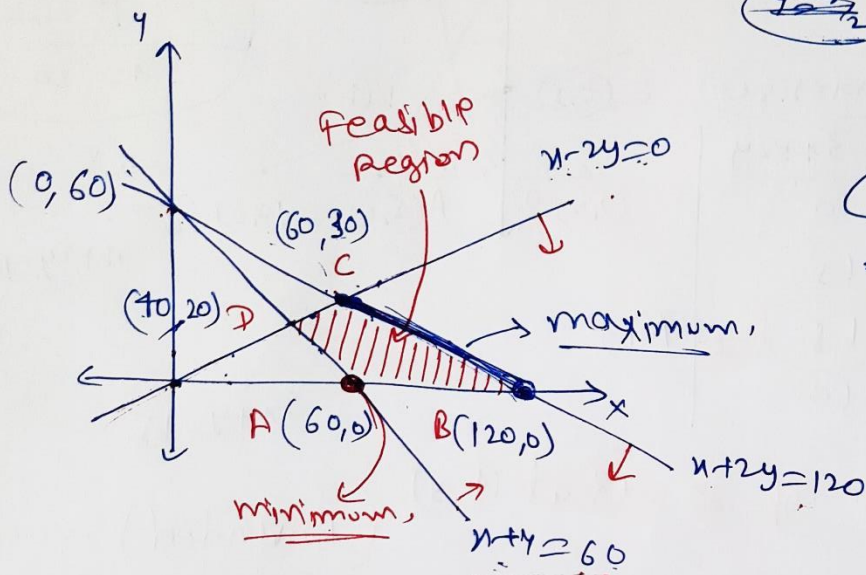 y
Feasible
Region
x-2y=0
(0,60)
(60,30)
C
(40,20) D
maximum,
x
A (60,0)
B(120,0)
x+2y=120
minimum,
x+y=60